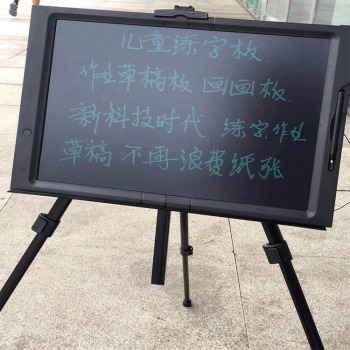 儿童练字板
作业草稿板 画画板
新科技时代 练字作业
草稿 不再浪费纸张